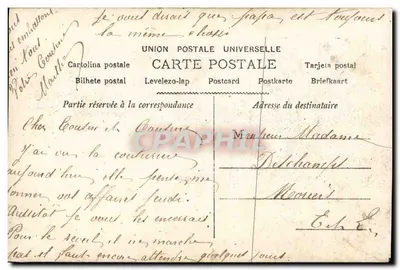 Je vous dirais que papa est toujours
la même chose
UNION POSTALE UNIVERSELLE
CARTE POSTALE
Cartolina postale
Tarjeta postal
Bilhete postal
Levelezo-lap
Postcard
Postkarte
Briefkaart
Partie réservée à la correspondance
Adresse du destinataire
Cher Cousin et Cousine
J'ai vu la couturière
aujourd'hui elle pense me
donner vos affaires jeudi.
Aussitôt je vous les enverrai
Pour le réveil il ne marche
pas il faut encore attendre quelques jours.
Monsieur Madame
Delchampt
embrassons
Votre Cousine
Marthe